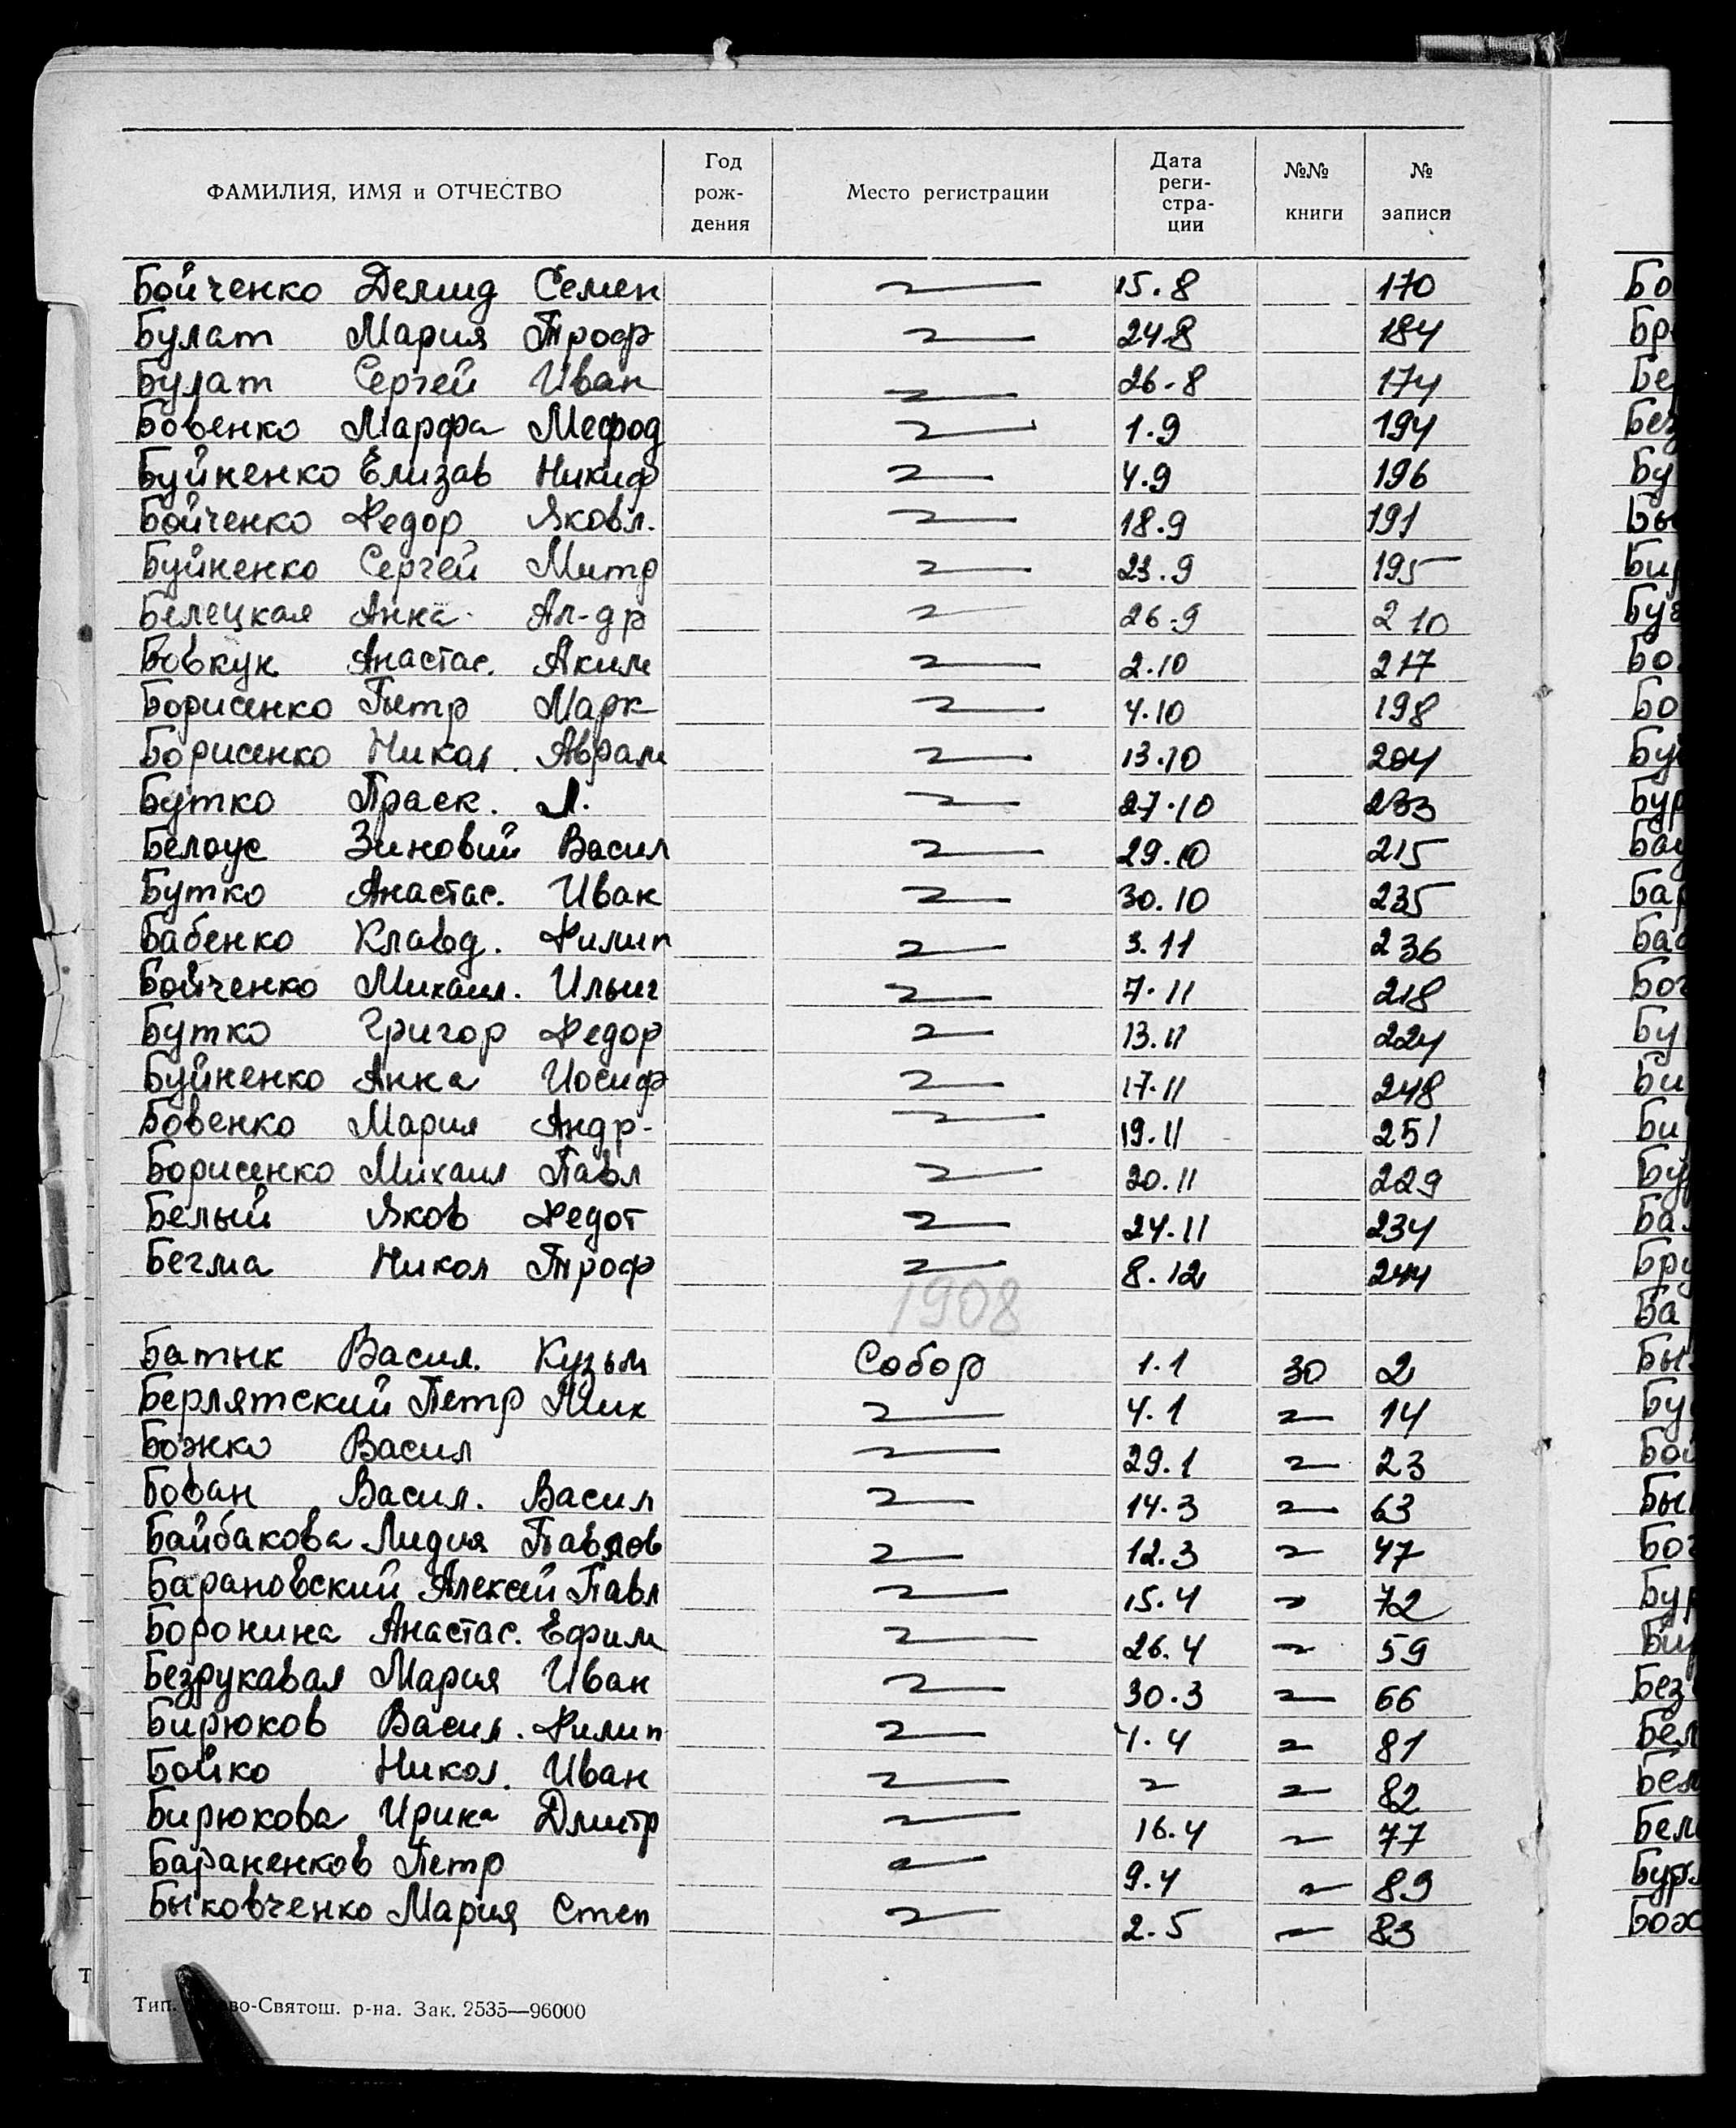 ФАМИЛИЯ, ИМЯ и ОТЧЕСТВО Год рождения Место регистрации Дата регистрации №№ книги № записи
Бойченко Демид Семен 〃 15.8 170
Булат Мария Троф 〃 24.8 184
Булат Сергей Иван 〃 26.8 174
Бовенко Марфа Мефод 〃 1.9 194
Буйненко Елизав Никиф 〃 4.9 196
Бойченко Федор Яковл. 〃 18.9 191
Буйненко Сергей Митр 〃 23.9 195
Белецкая Анна Ал-др 〃 26.9 210
Бовкун Анастас. Аким 〃 2.10 217
Борисенко Петр Марк 〃 4.10 198
Борисенко Никол. Аврам 〃 13.10 204
Бутко Праск. Л. 〃 27.10 233
Белоус Зиновий Васил 〃 29.10 215
Бутко Анастас. Иван 〃 30.10 235
Бабенко Клавд. Филип 〃 3.11 236
Бойченко Михаил. Ильич 〃 7.11 218
Бутко Григор Федор 〃 13.11 224
Буйненко Анна Иосиф 〃 17.11 248
Бовенко Мария Андр- 〃 19.11 251
Борисенко Михаил Павл 〃 20.11 229
Белый Яков Федот 〃 24.11 234
Бегма Никол Троф 〃 8.12 244
1908
Батык Васил. Кузьм Собор 1.1 30 2
Берлятский Петр Мих 〃 4.1 〃 14
Божко Васил 〃 29.1 〃 23
Бован Васил. Васил 〃 14.3 〃 63
Байбакова Лидия Павлов 〃 12.3 〃 47
Барановский Алексей Павл 〃 15.4 〃 72
Боронина Анастас. Ефим 〃 26.4 〃 59
Безрукавая Мария Иван 〃 30.3 〃 66
Бирюков Васил. Филип 〃 4.4 〃 81
Бойко Никол. Иван 〃 〃 〃 82
Бирюкова Ирина Дмитр 〃 16.4 〃 77
Бараненков Петр 〃 9.4 〃 89
Быковченко Мария Степ 〃 2.5 〃 83
Тип. во-Святош. р-на. Зак. 2535—96000